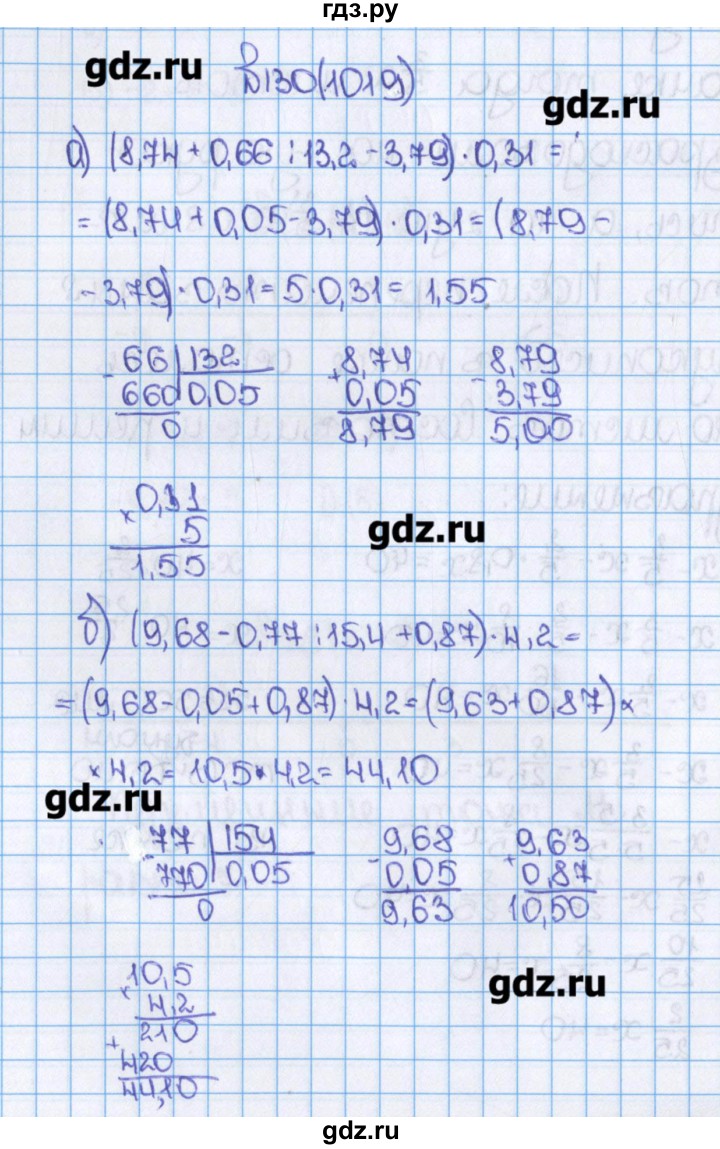 гдз.ру
gdz.ru
№130(1019)
gdz.ru
а) (8,74 + 0,66 : 13,2 - 3,79) · 0,31 =
= (8,74 + 0,05 - 3,79) · 0,31 = (8,79 -
- 3,79) · 0,31 = 5 · 0,31 = 1,55
- 66 | 132
660 | 0,05
0
+ 8,74
0,05
8,79
- 8,79
3,79
5,00
× 0,31
5
1,55
gdz.ru
б) (9,68 - 0,77 : 15,4 + 0,87) · 4,2 =
= (9,68 - 0,05 + 0,87) · 4,2 = (9,63 + 0,87) ×
× 4,2 = 10,5 · 4,2 = 44,10
gdz.ru
- 77 | 154
770 | 0,05
0
- 9,68
0,05
9,63
+ 9,63
0,87
10,50
× 10,5
4,2
+ 210
420
44,10
gdz.ru
gdz.ru